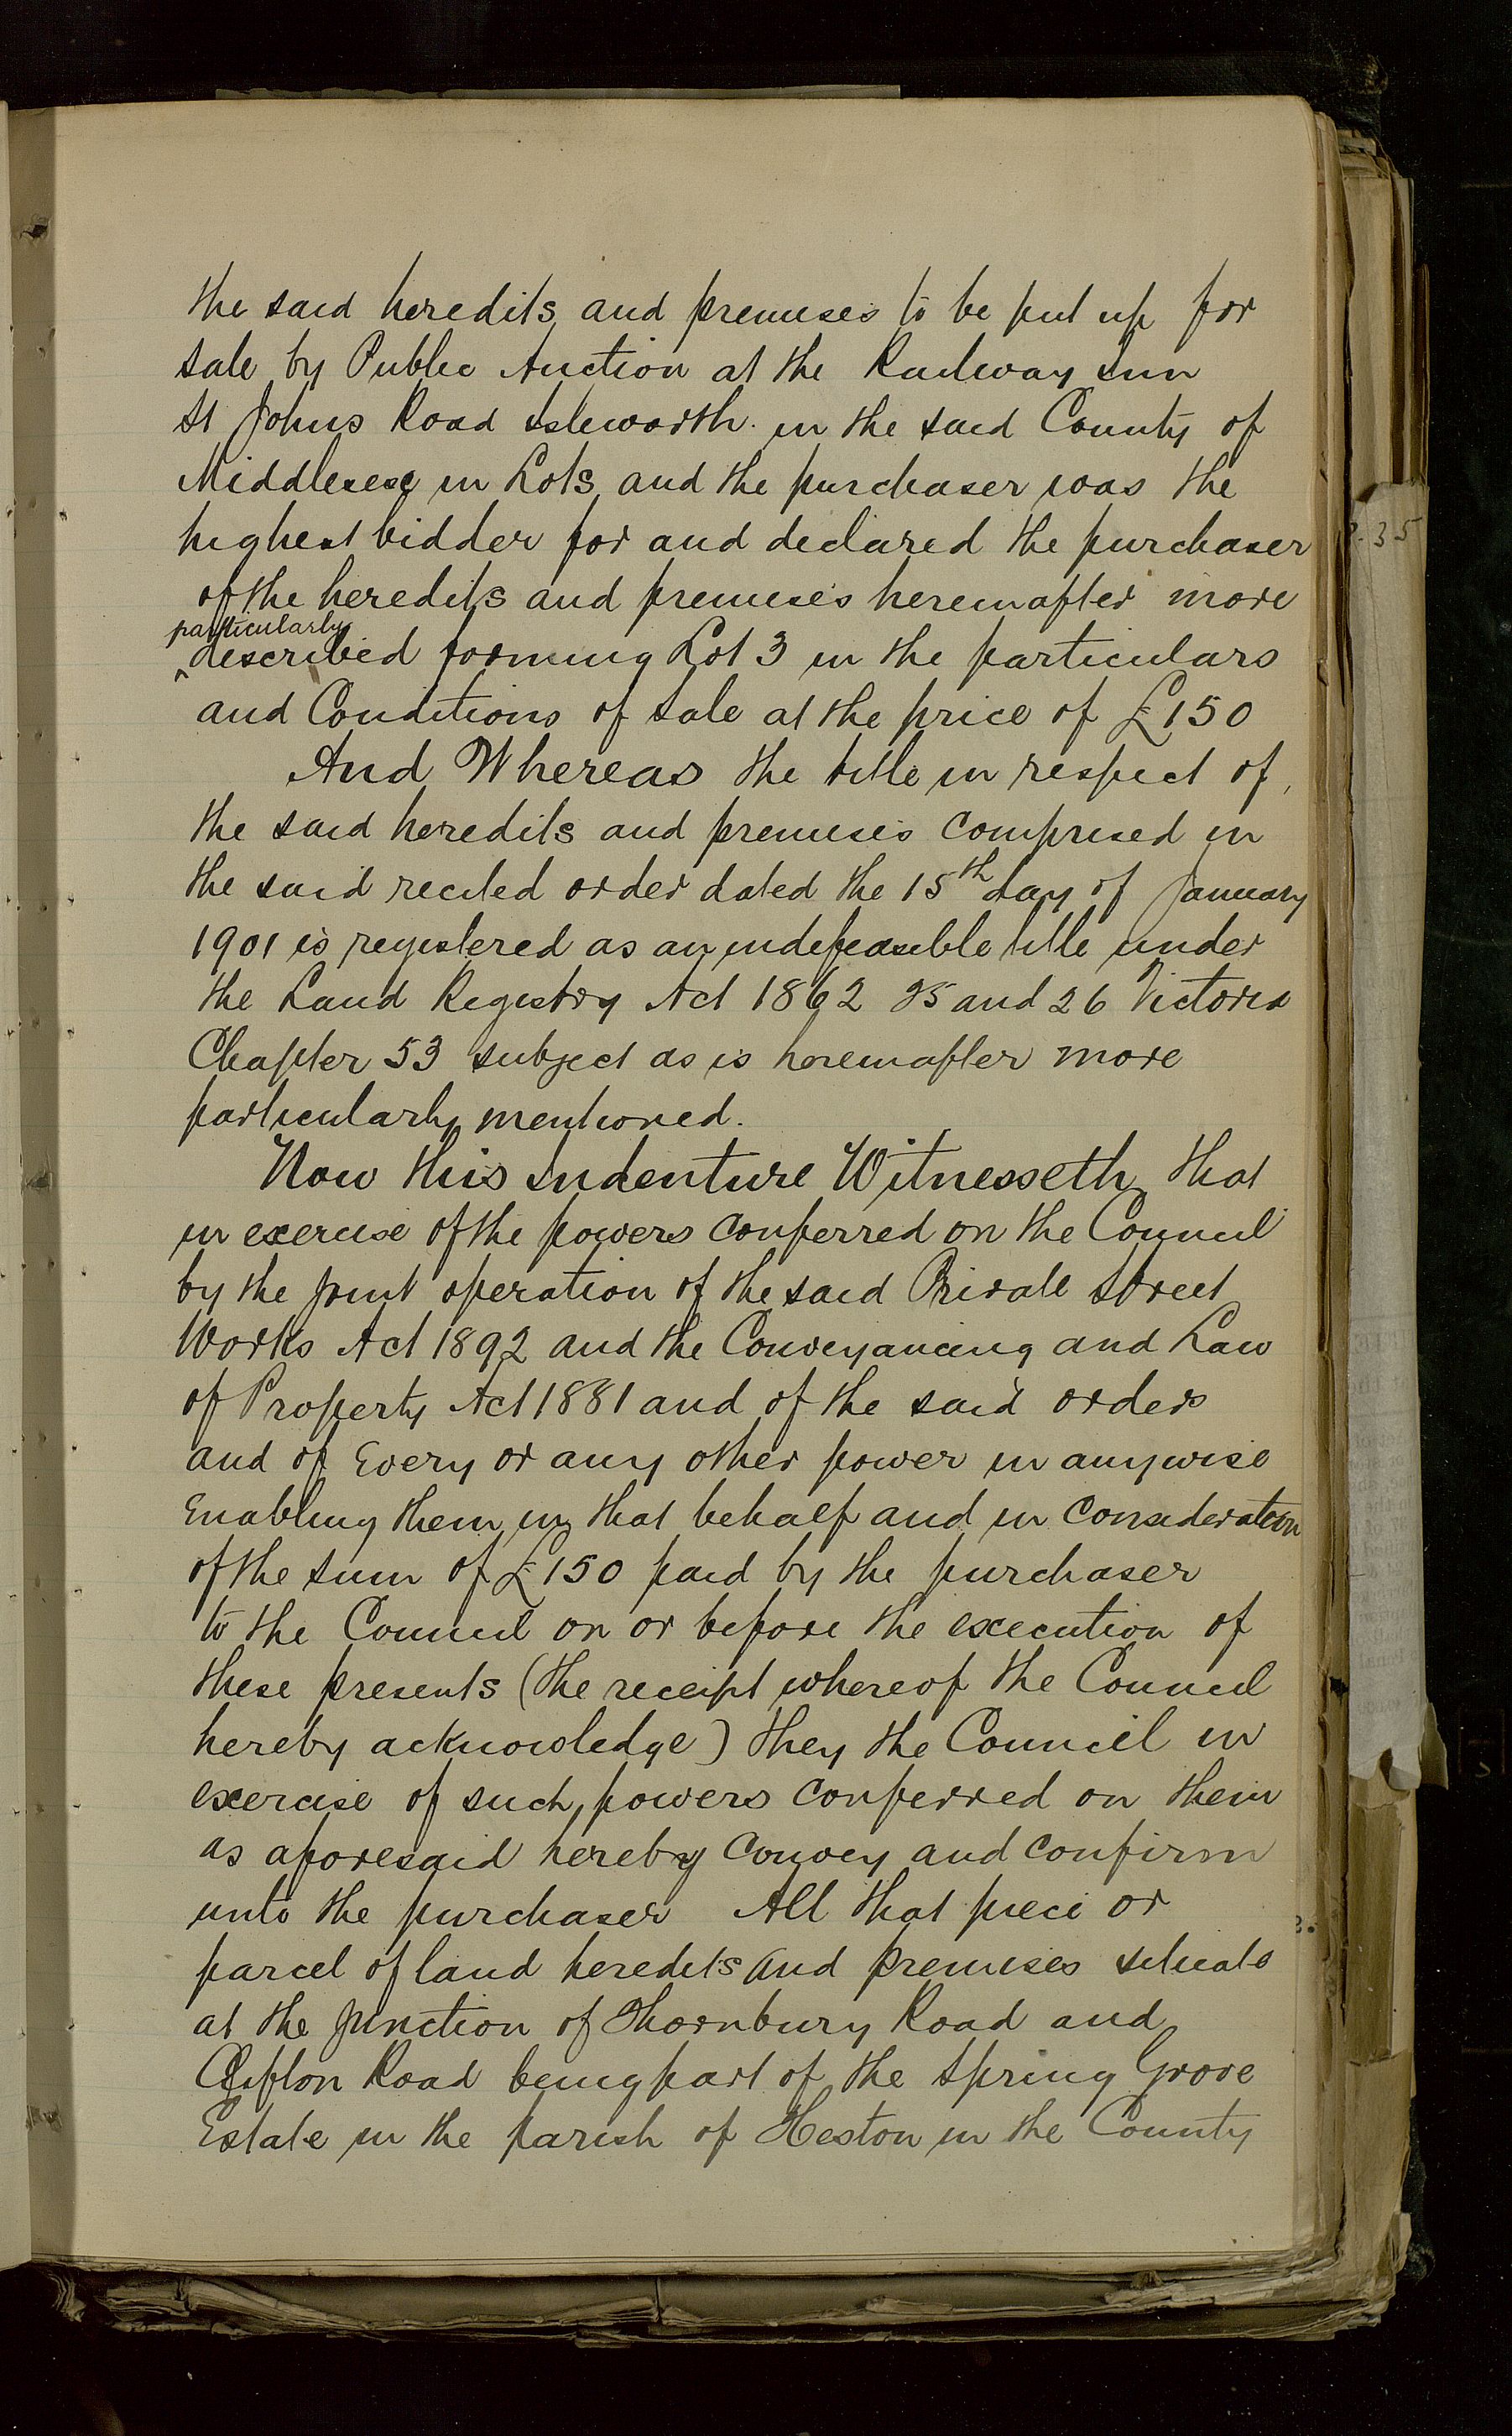 the said heredits and premises to be put up for
sale by Public Auction at the Railway Inn
St Johns Road Isleworth in the said County of
Middlesex in Lots and the purchaser was the
highest bidder for and declared the purchaser
of the heredits and premises hereinafter more
particularly
described forming Lot 3 in the particulars
and Conditions of Sale at the price of £150
And Whereas the title in respect of
the said heredits and premises comprised in
the said recited order dated the 15th day of January
1901 is registered as an indefeasible title under
the Land Registry Act 1862 25 and 26 Victoria
Chapter 53 subject as is hereinafter more
particularly mentioned.
Now this Indenture Witnesseth that
in exercise of the powers conferred on the Council
by the joint operation of the said Private Street
Works Act 1892 and the Conveyancing and Law
of Property Act 1881 and of the said orders
and of Every or any other power in anywise
Enabling them in that behalf and in consideration
of the sum of £150 paid by the purchaser
to the Council on or before the execution of
these presents (the receipt whereof the Council
hereby acknowledge) they the Council in
exercise of such powers conferred on them
as aforesaid hereby Convey and confirm
unto the purchaser All that piece or
parcel of land heredits and premises situate
at the junction of Thornbury Road and
Clifton Road being part of the Spring Grove
Estate in the parish of Heston in the County